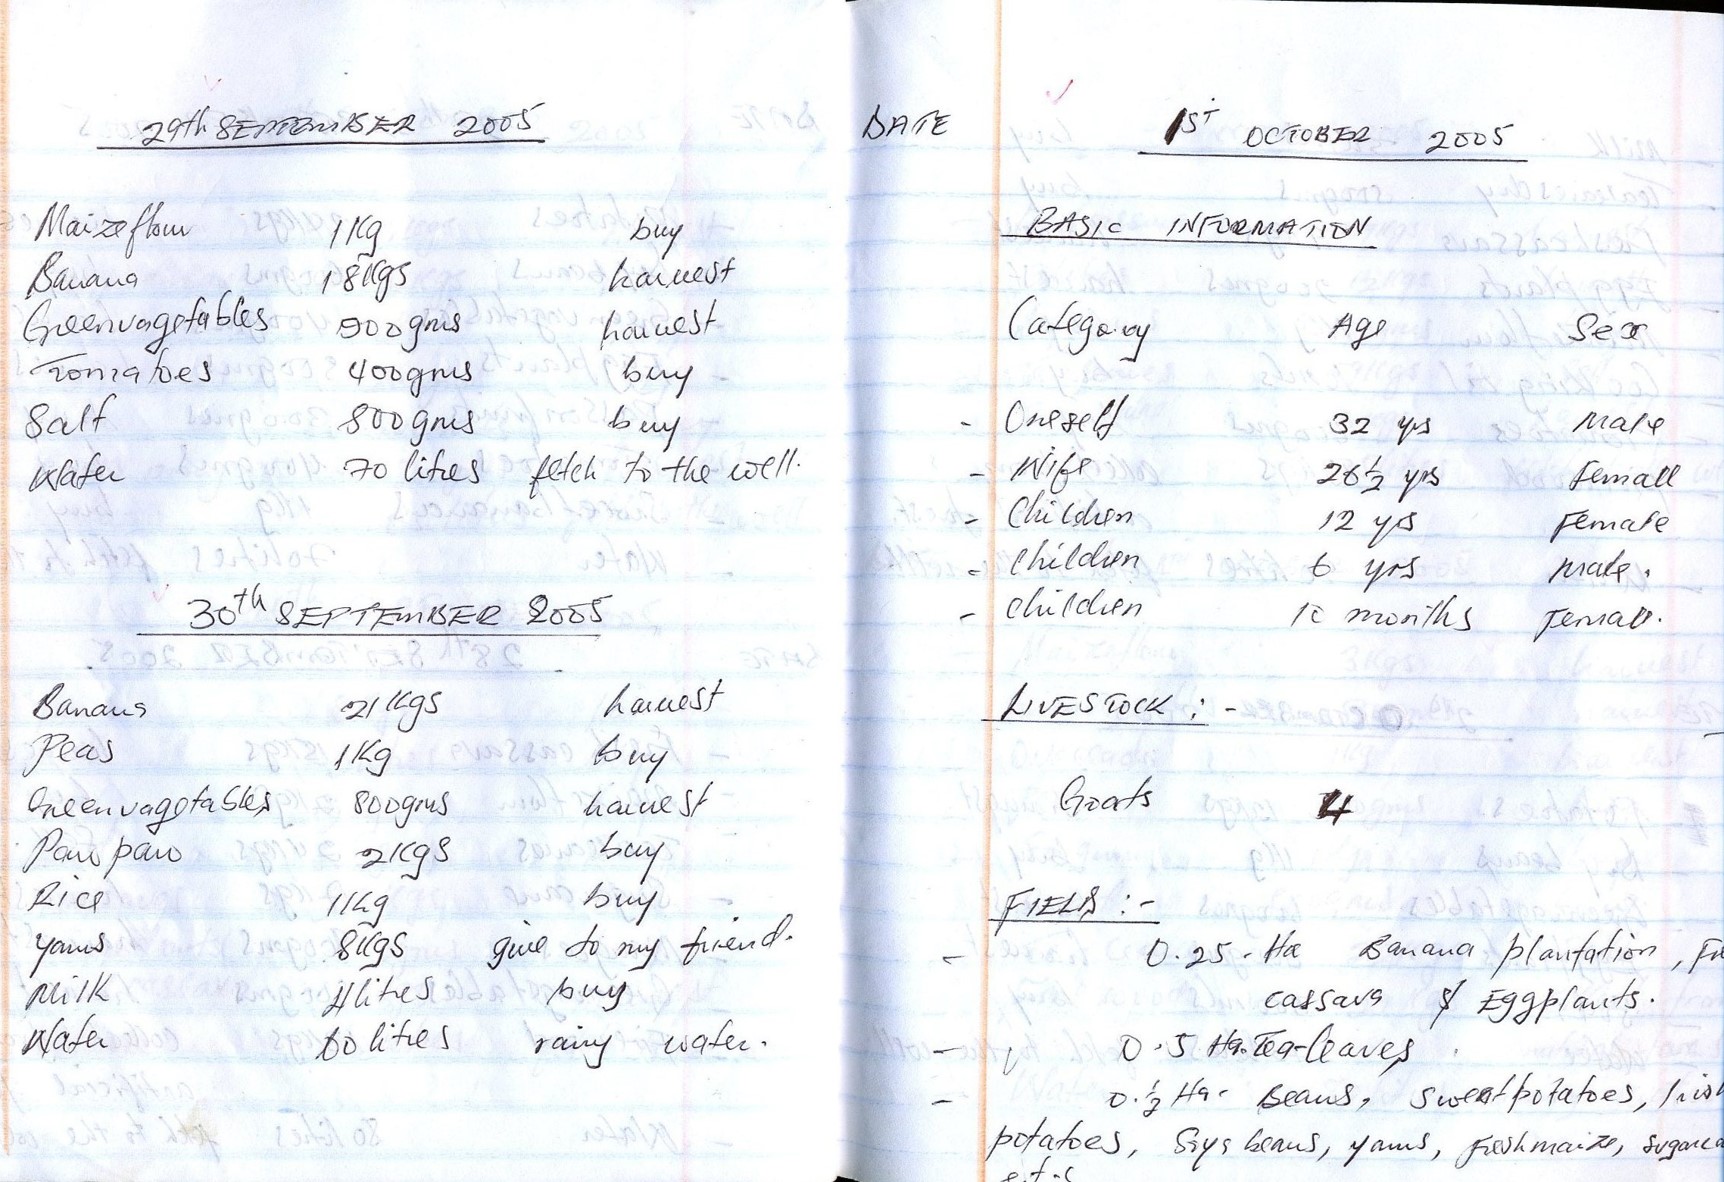 29th SEPTEMBER 2005
Maizeflour 1Kg buy
Banana 18Kgs harvest
Greenvagetables 900gms harvest
Tomatoes 400gms buy
Salt 800gms buy
Water 70 litres fetch to the well.
30th SEPTEMBER 2005
Banana 21Kgs harvest
Peas 1Kg buy
Greenvagetables 800gms harvest
Paw paw 2Kgs buy
Rice 1Kg buy
yams 8Kgs give to my friend.
Milk 4litres buy
Water 60 litres rainy water.
DATE 1ST OCTOBER 2005
BASIC INFORMATION
Category Age Sex
- Oneself 32 yrs Male
- Wife 26½ yrs Female
- Children 12 yrs Female
- Children 6 yrs Male.
- Children 10 months Female.
LIVESTOCK :-
Goats 4
FIELD :-
- 0.25 - Ha Banana plantation,
cassava & Eggplants.
- 0.5 Ha. Tea-leaves
- 0.½ Ha- Beans, Sweetpotatoes, Irish
potatoes, Soya beans, yams, freshmaize, sugarca
e.t.c